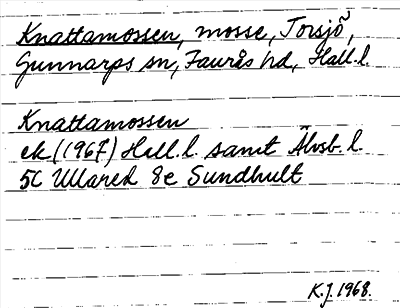 Knattamossen, mosse, Torsjö,
Gunnarps sn, Faurås hd, Hall.l.
Knattamossen
ek (1967) Hall.l. samt Älvsb.l.
5C Ullared 8e Sundhult
K.J. 1968.